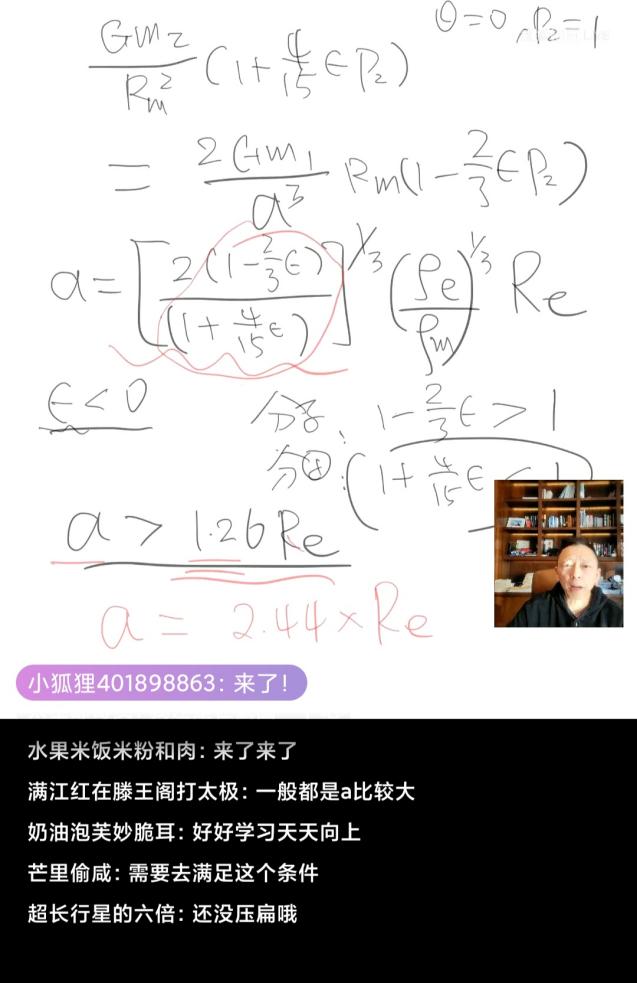 θ=0, P₂=1
Gm₂/Rₘ² (1+4/15 ϵP₂)
= 2Gm₁/a³ Rm(1-2/3 ϵP₂)
a=[2(1-2/3 ϵ)/(1+4/15 ϵ)]^1/3 (ρe/ρm)^1/3 Re
ϵ<0
分子: 1-2/3 ϵ>1
分母: (1+4/15 ϵ<1)
a > 1.26Re
a = 2.44×Re
小狐狸401898863: 来了!
水果米饭米粉和肉: 来了来了
满江红在滕王阁打太极: 一般都是a比较大
奶油泡芙妙脆耳: 好好学习天天向上
芒里偷咸: 需要去满足这个条件
超长行星的六倍: 还没压扁哦